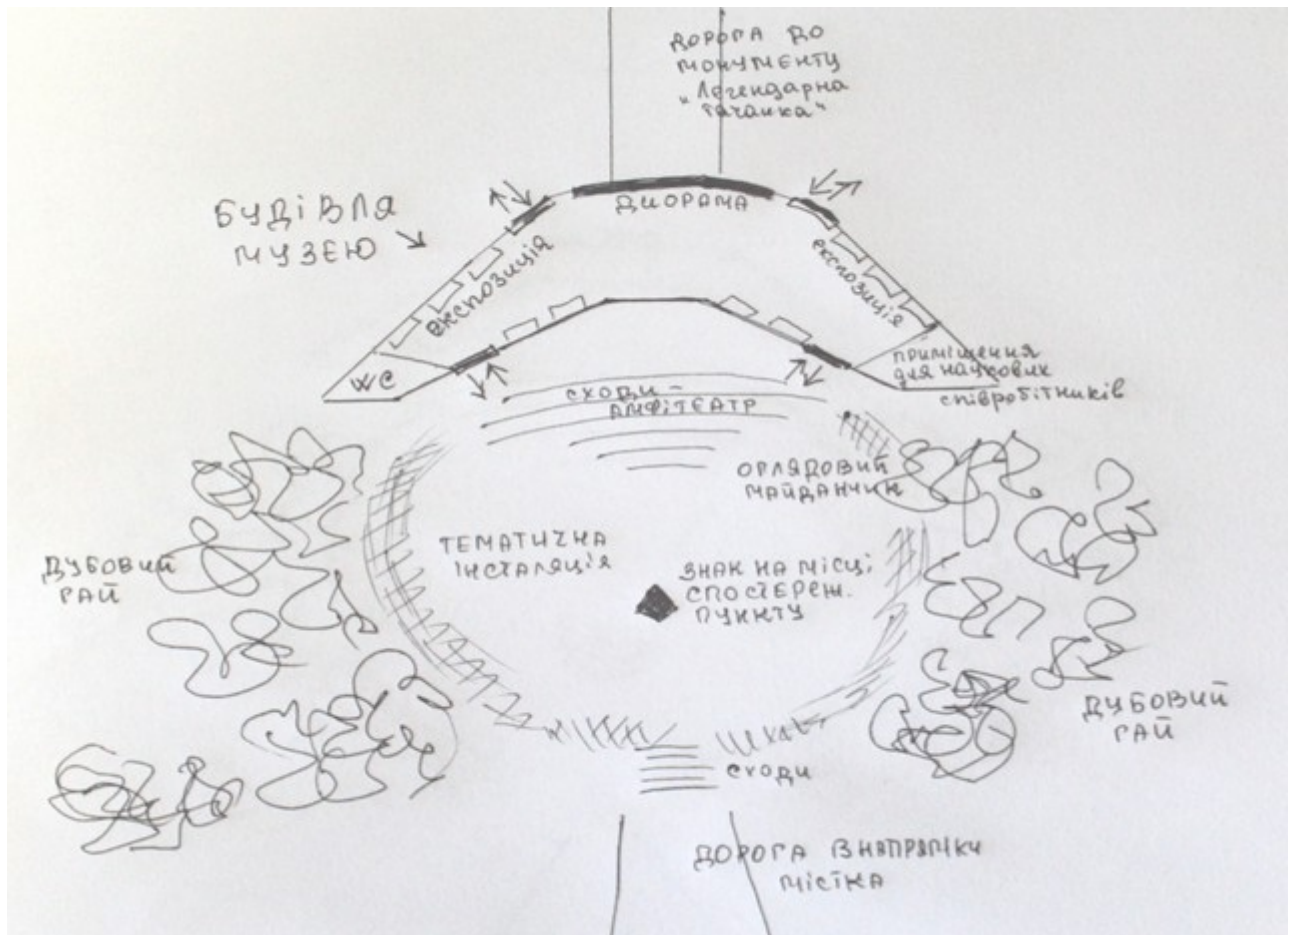 ДОРОГА ДО
МОНУМЕНТУ
"Легендарна
тачанка"
БУДІВЛЯ
МУЗЕЮ
ДИОРАМА
експозиція
експозиція
WC
приміщення
для наукових
співробітників
сходи-
амфітеатр
ОГЛЯДОВИЙ
МАЙДАНЧИК
ТЕМАТИЧНА
ІНСТАЛЯЦІЯ
ЗНАК НА МІСЦІ
СПОСТЕРЕЖ.
ПУНКТУ
ДУБОВИЙ
ГАЙ
ДУБОВИЙ
ГАЙ
сходи
ДОРОГА В НАПРЯМКУ
МІСТКА